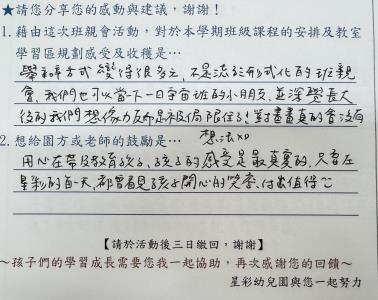 ★請您分享您的感動與建議，謝謝！
1. 藉由這次班親會活動，對於本學期班級課程的安排及教室
學習區規劃感受及收穫是…
學習方式變得很多元，不是流於形式化的班親
會，我們也可以當一下一日宇宙班的小朋友，並深覺長大
後的我們想像力反而是被侷限住了！對畫畫真的會沒有
想法XD
2. 想給園方或老師的鼓勵是…
用心在帶及教育孩子，孩子的感受是最真實的，只要在
星彩的每一天，都曾看見孩子開心的笑容，付出值得～
【請於活動後三日繳回，謝謝】
～孩子們的學習成長需要您我一起協助，再次感謝您的回饋～
星彩幼兒園與您一起努力